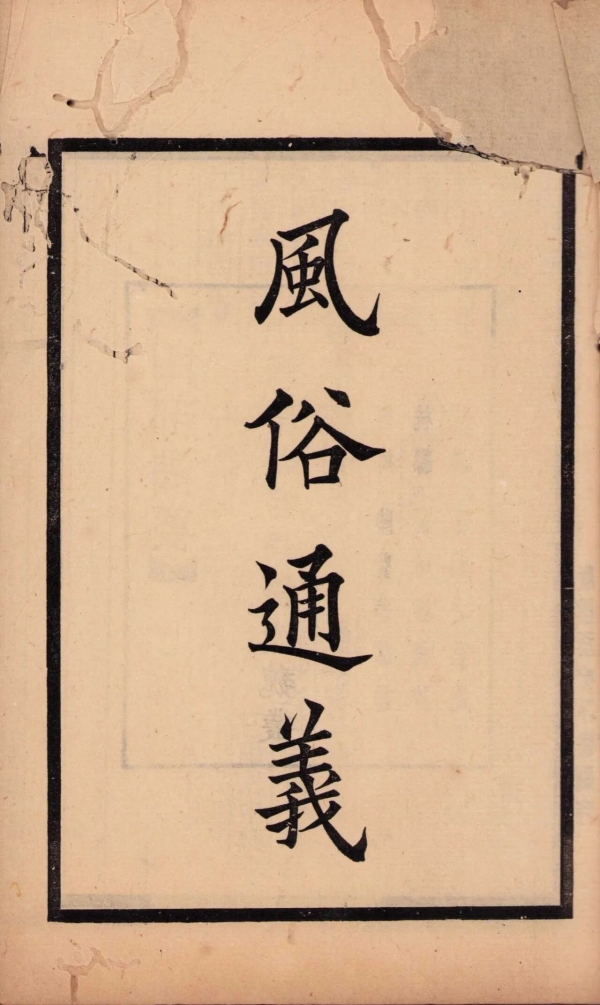 風俗通義